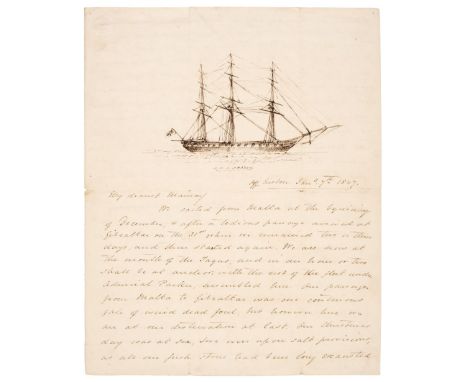 off Lisbon Jany 7th 1847.
My dearest Mamma,
We sailed from Malta at the beginning
of December, & after a tedious passage arrived at
Gibraltar on the 31st where we remained two or three
days, and then started again. We are now at
the mouth of the Tagus, and in an hour or two
shall be at anchor, with the rest of the fleet under
Admiral Parker, assembled here. Our passage
from Malta to Gibraltar was one continuous
gale of wind dead foul, but however here we
are at our destination at last. Our Christmas
day was at sea, and was upon salt provisions,
as all our fresh stores had been long exhausted